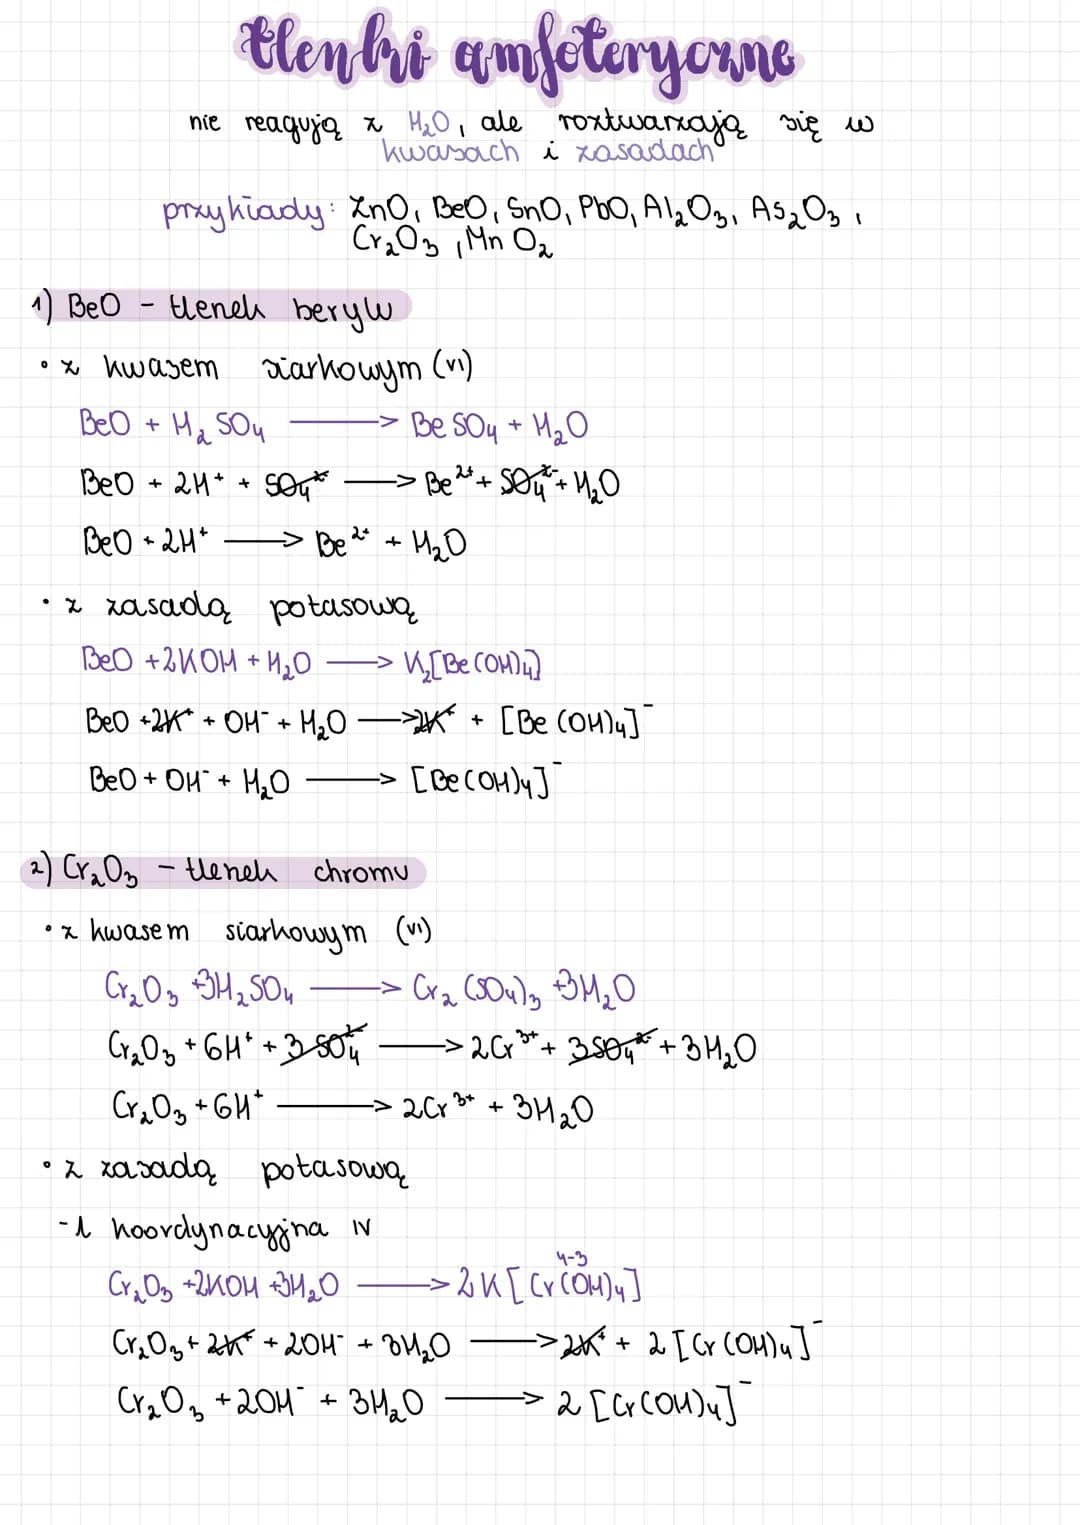 tlenki amfoteryczne
nie reagują z H₂O, ale roztwarzają się w
kwasach i zasadach
przykłady: ZnO, BeO, SnO, PbO, Al₂O₃, As₂O₃,
Cr₂O₃, MnO₂
1) BeO - tlenek berylu
• z kwasem siarkowym (VI)
BeO + H₂SO₄ ⟶ BeSO₄ + H₂O
BeO + 2H⁺ + SO₄²⁻ ⟶ Be²⁺ + SO₄²⁻ + H₂O
BeO + 2H⁺ ⟶ Be²⁺ + H₂O
• z zasadą potasową
BeO + 2KOH + H₂O ⟶ K₂[Be(OH)₄]
BeO + 2K⁺ + OH⁻ + H₂O ⟶ 2K⁺ + [Be(OH)₄]⁻
BeO + OH⁻ + H₂O ⟶ [Be(OH)₄]⁻
2) Cr₂O₃ - tlenek chromu
• z kwasem siarkowym (VI)
Cr₂O₃ + 3H₂SO₄ ⟶ Cr₂(SO₄)₃ + 3H₂O
Cr₂O₃ + 6H⁺ + 3SO₄²⁻ ⟶ 2Cr³⁺ + 3SO₄²⁻ + 3H₂O
Cr₂O₃ + 6H⁺ ⟶ 2Cr³⁺ + 3H₂O
• z zasadą potasową
- l koordynacyjna IV
4-3
Cr₂O₃ + 2KOH + 3H₂O ⟶ 2K[Cr(OH)₄]
Cr₂O₃ + 2K⁺ + 2OH⁻ + 3H₂O ⟶ 2K⁺ + 2[Cr(OH)₄]⁻
Cr₂O₃ + 2OH⁻ + 3H₂O ⟶ 2[Cr(OH)₄]⁻